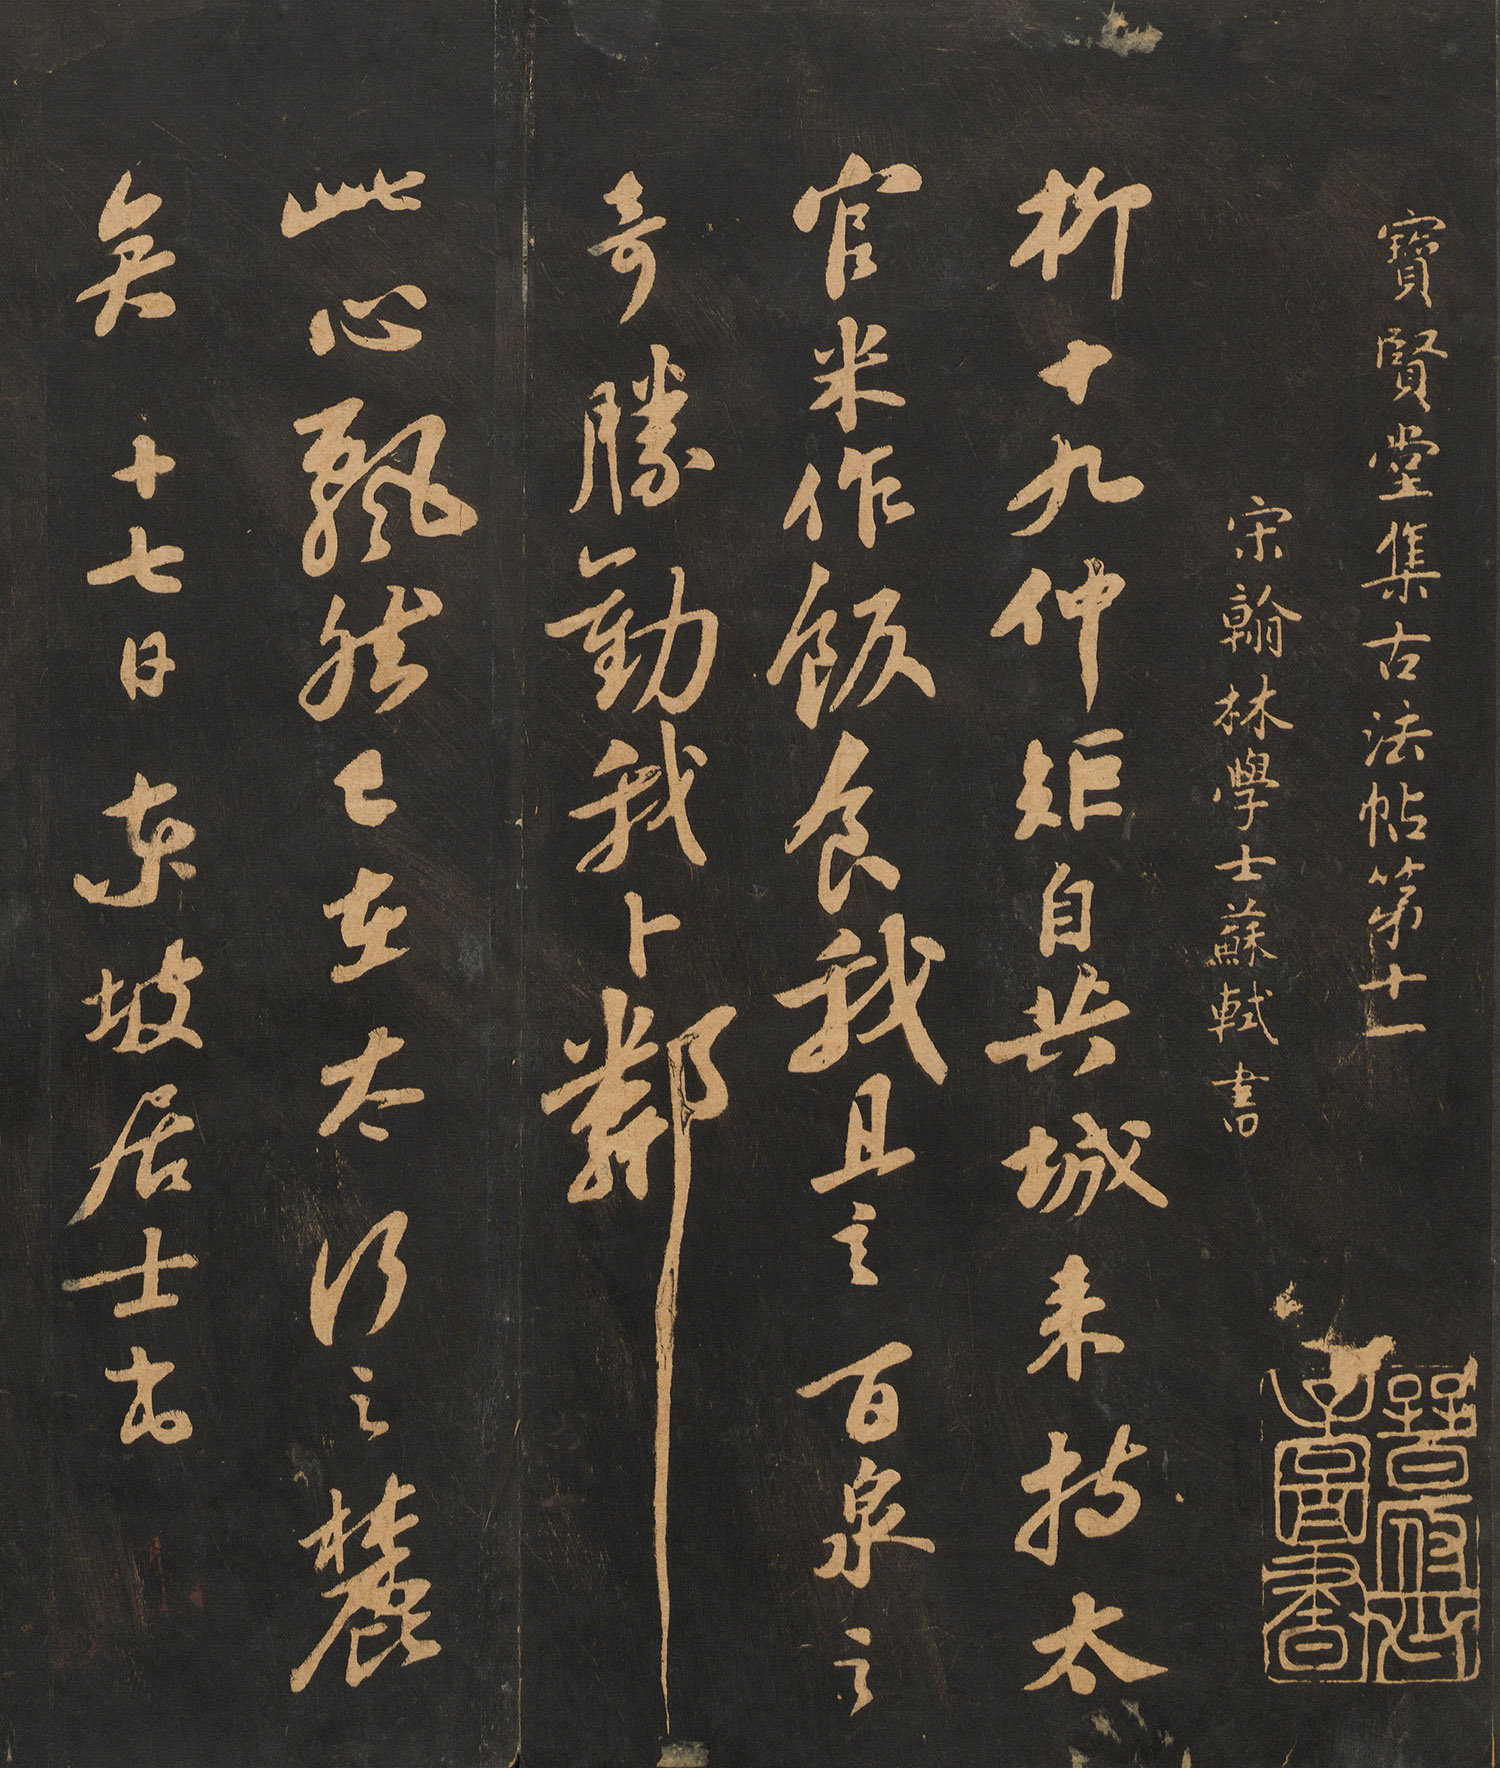 寶賢堂集古法帖第十一
宋翰林學士蘇軾書
柳十九仲矩自共城来持太
官米作飯食我且言百泉之
奇勝勸我卜鄰
此心飄然已在太行之麓
矣 十七日 東坡居士書